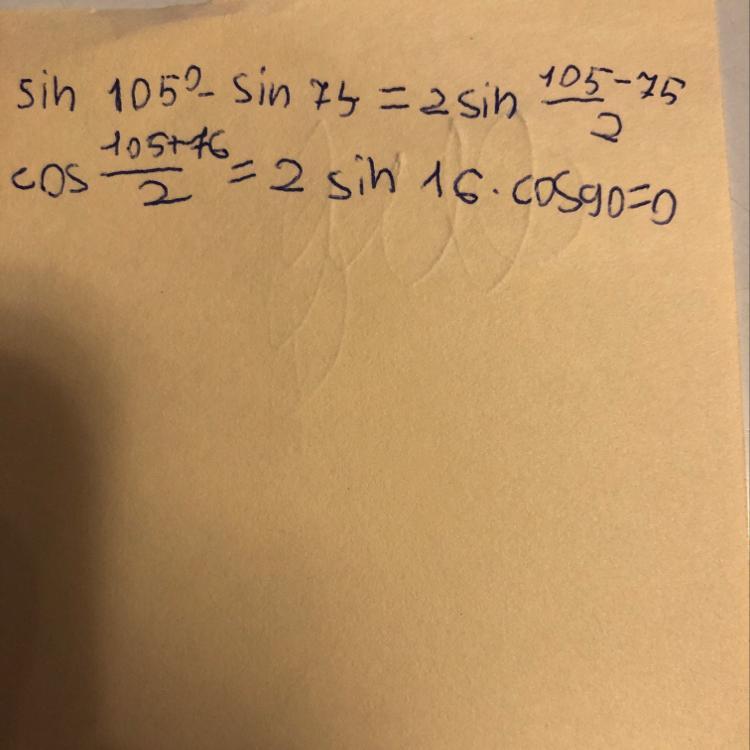 sin 105⁰- sin 75 = 2 sin (105-75)/2
cos (105+76)/2 = 2 sin 16 · cos90=0